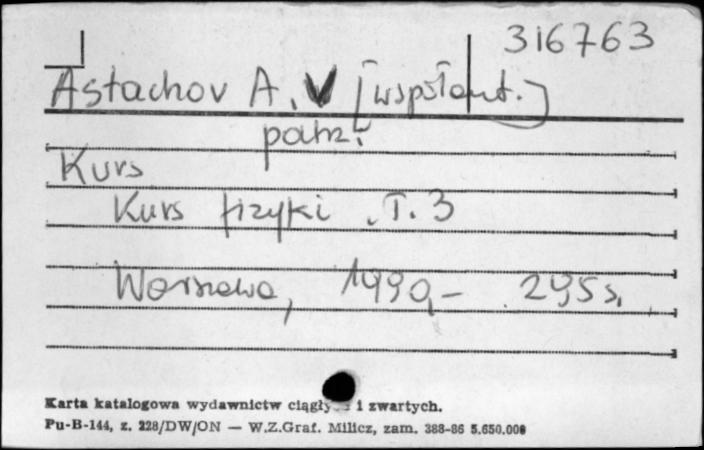 316763
Astachov A. V [współaut.]
patrz:
Kurs
Kurs fizyki . T. 3
Warszawa, 1990, - 295 s.
Karta katalogowa wydawnictw i zwartych.
Pu-B-144, z. 228/DW/ON — W.Z.Graf. Milicz, zam. 388-86 5.650.000